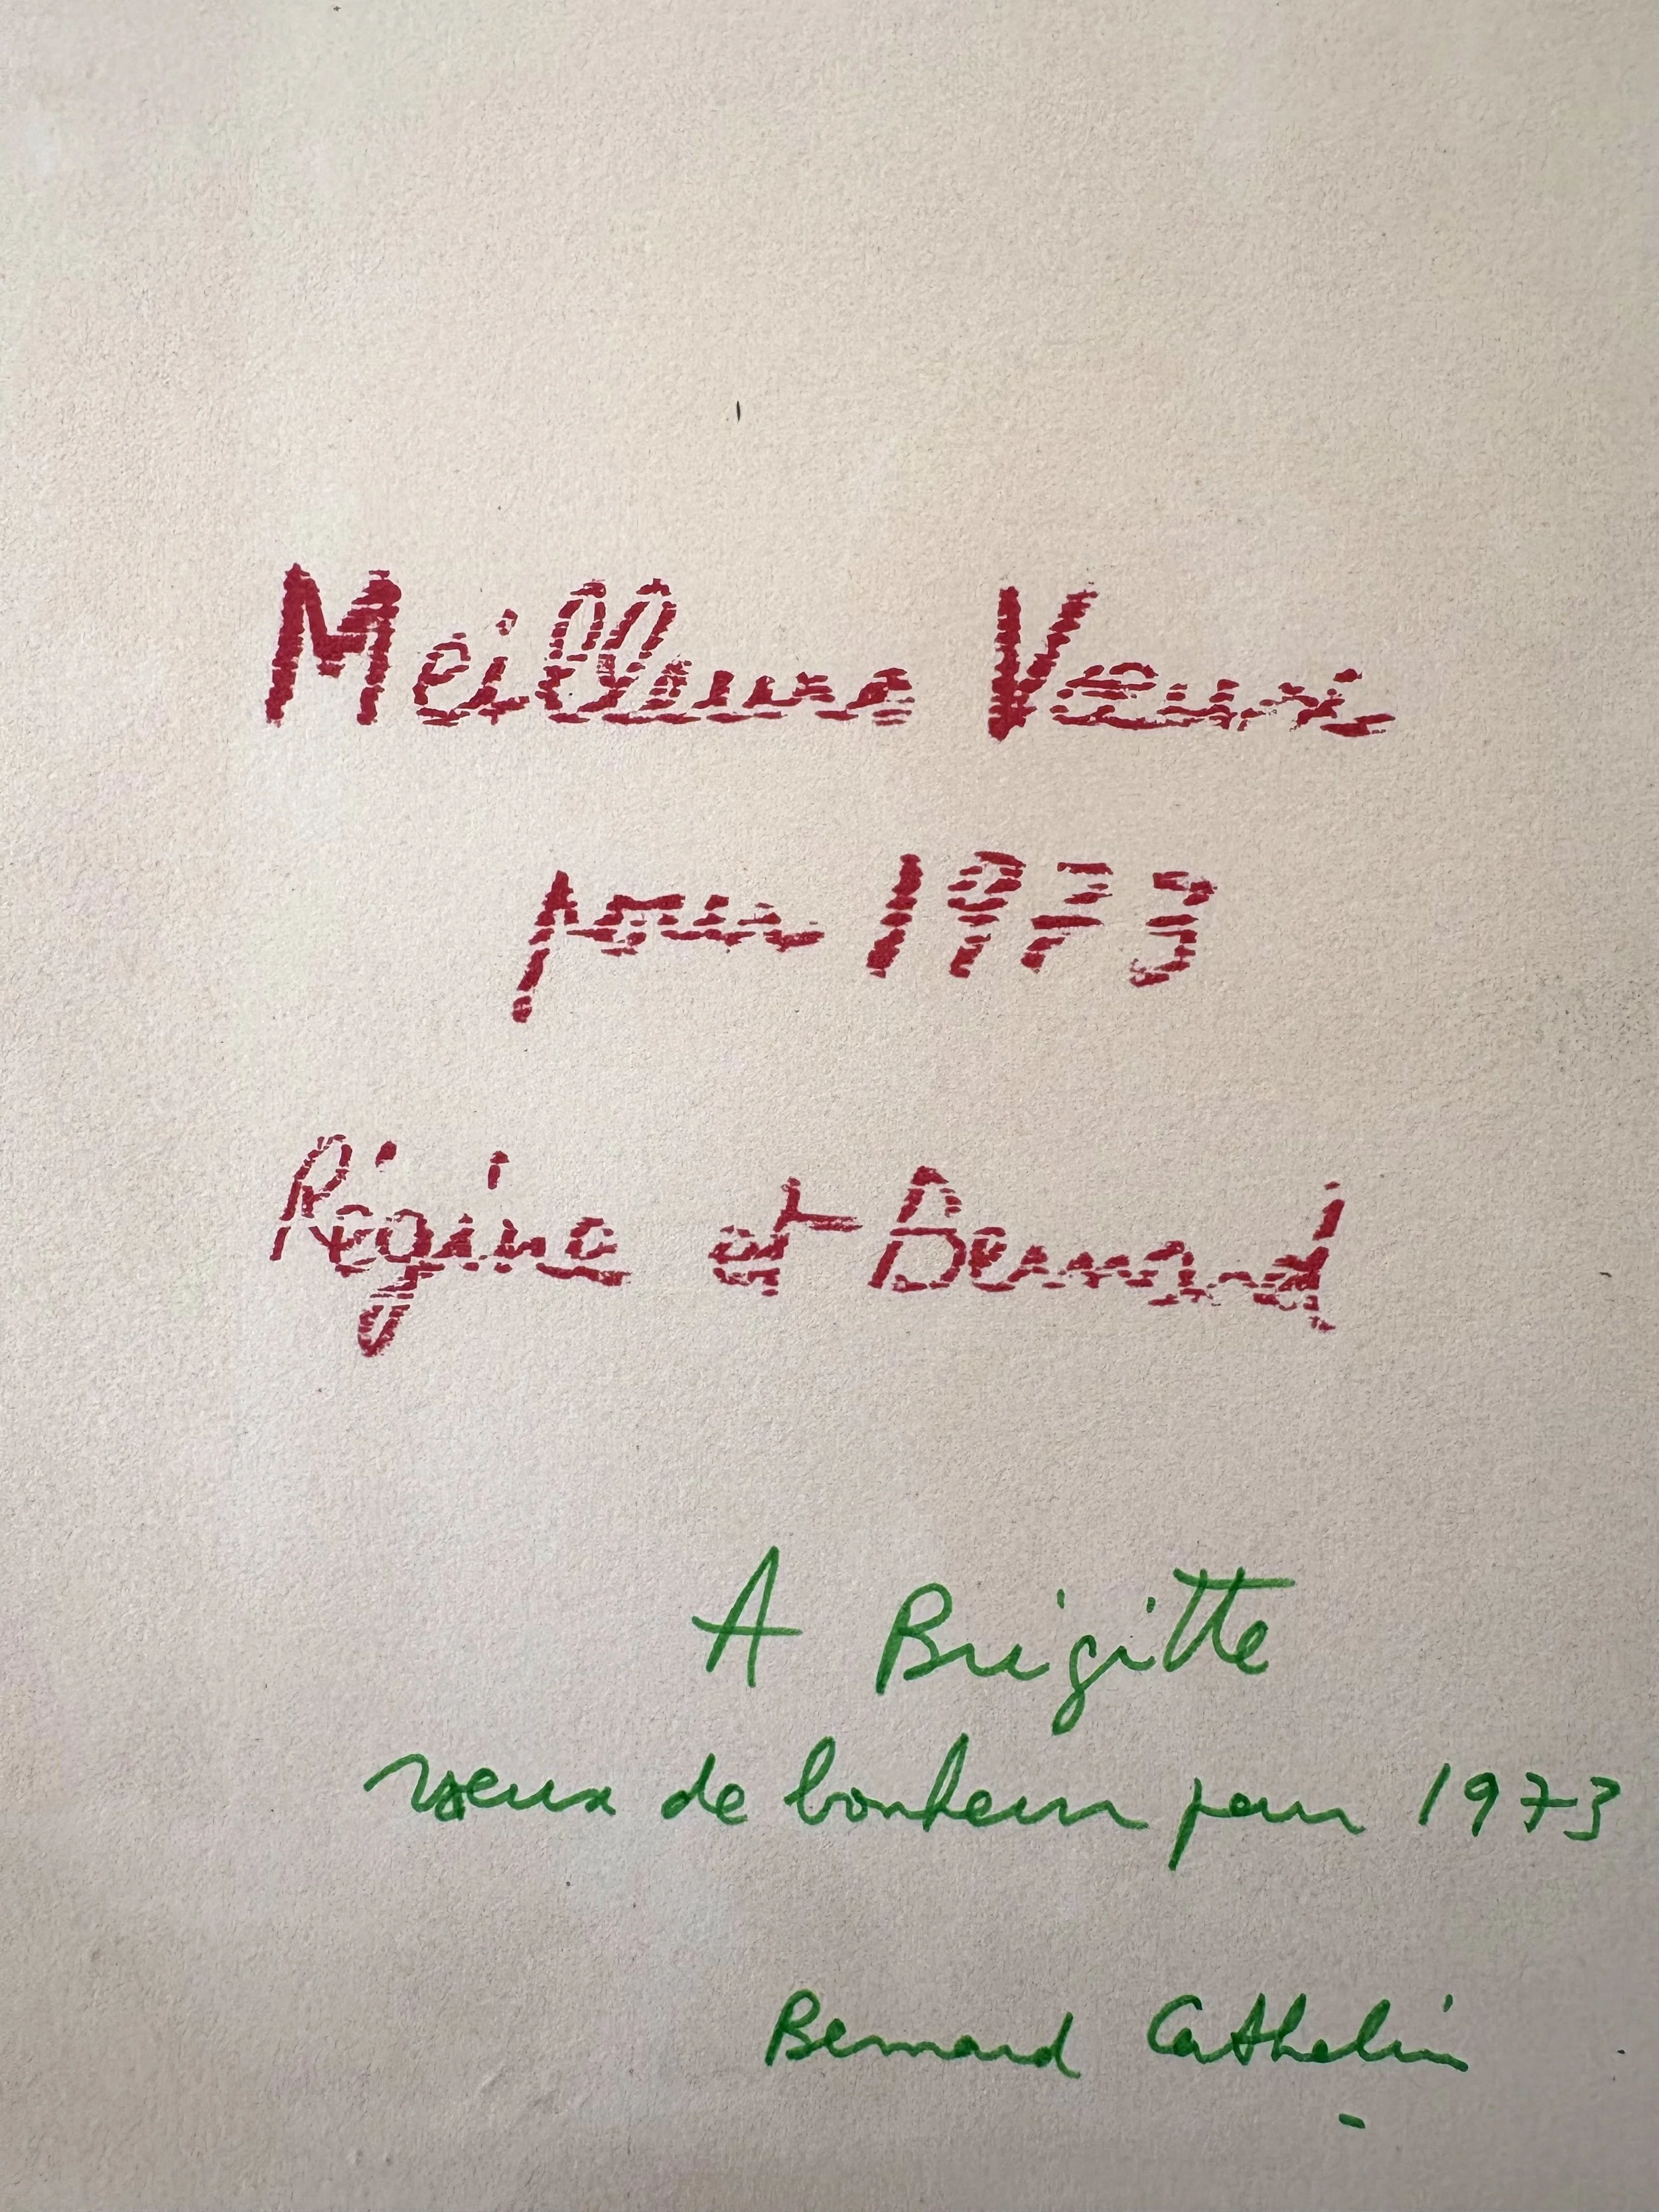 Meilleurs Vœux
pour 1973
Régine et Bernard
A Brigitte
vœux de bonheur pour 1973
Bernard Cathelin